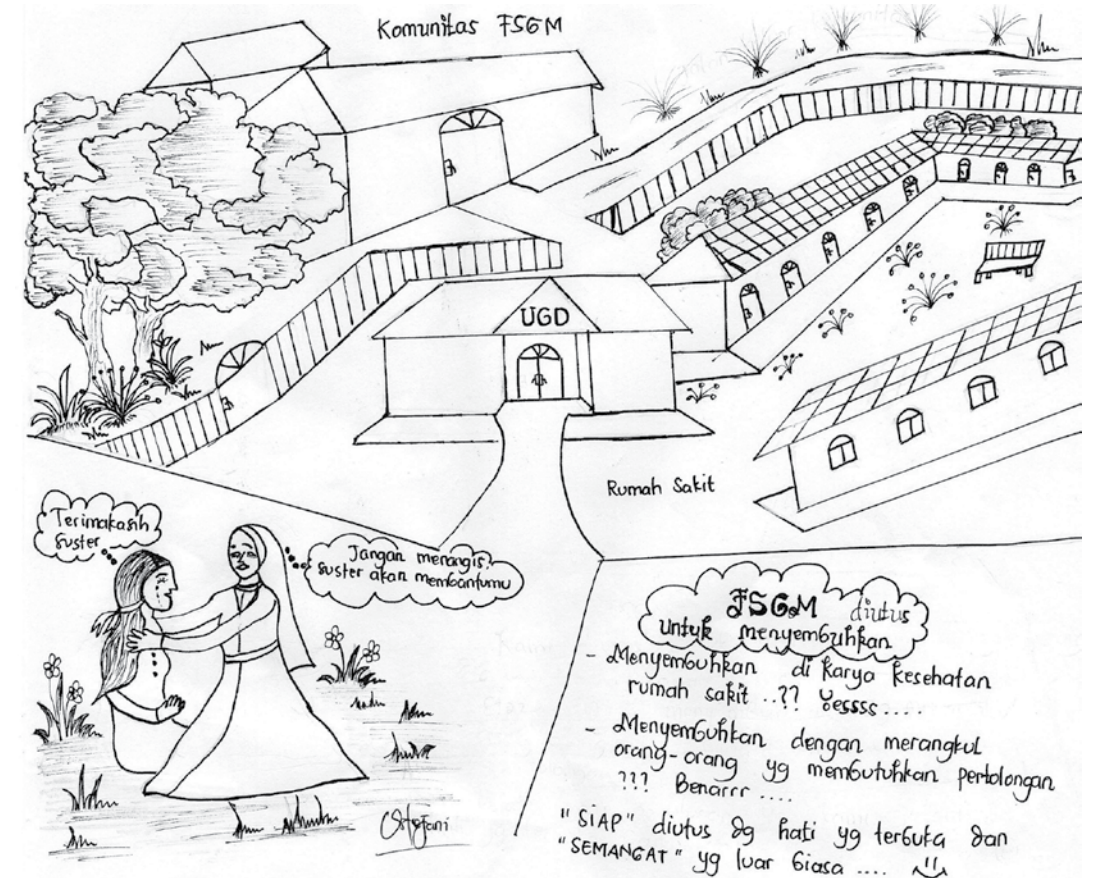 Komunitas FSGM
UGD
Rumah Sakit
Terimakasih
suster
Jangan menangis!
suster akan membantumu
FSGM diutus
untuk menyembuhkan
- Menyembuhkan di karya kesehatan
rumah sakit ..?? Yessss....
- Menyembuhkan dengan merangkul
orang-orang yg membutuhkan pertolongan
??? Benarrr ....
"SIAP" diutus dg hati yg terbuka dan
"SEMANGAT" yg luar biasa ....